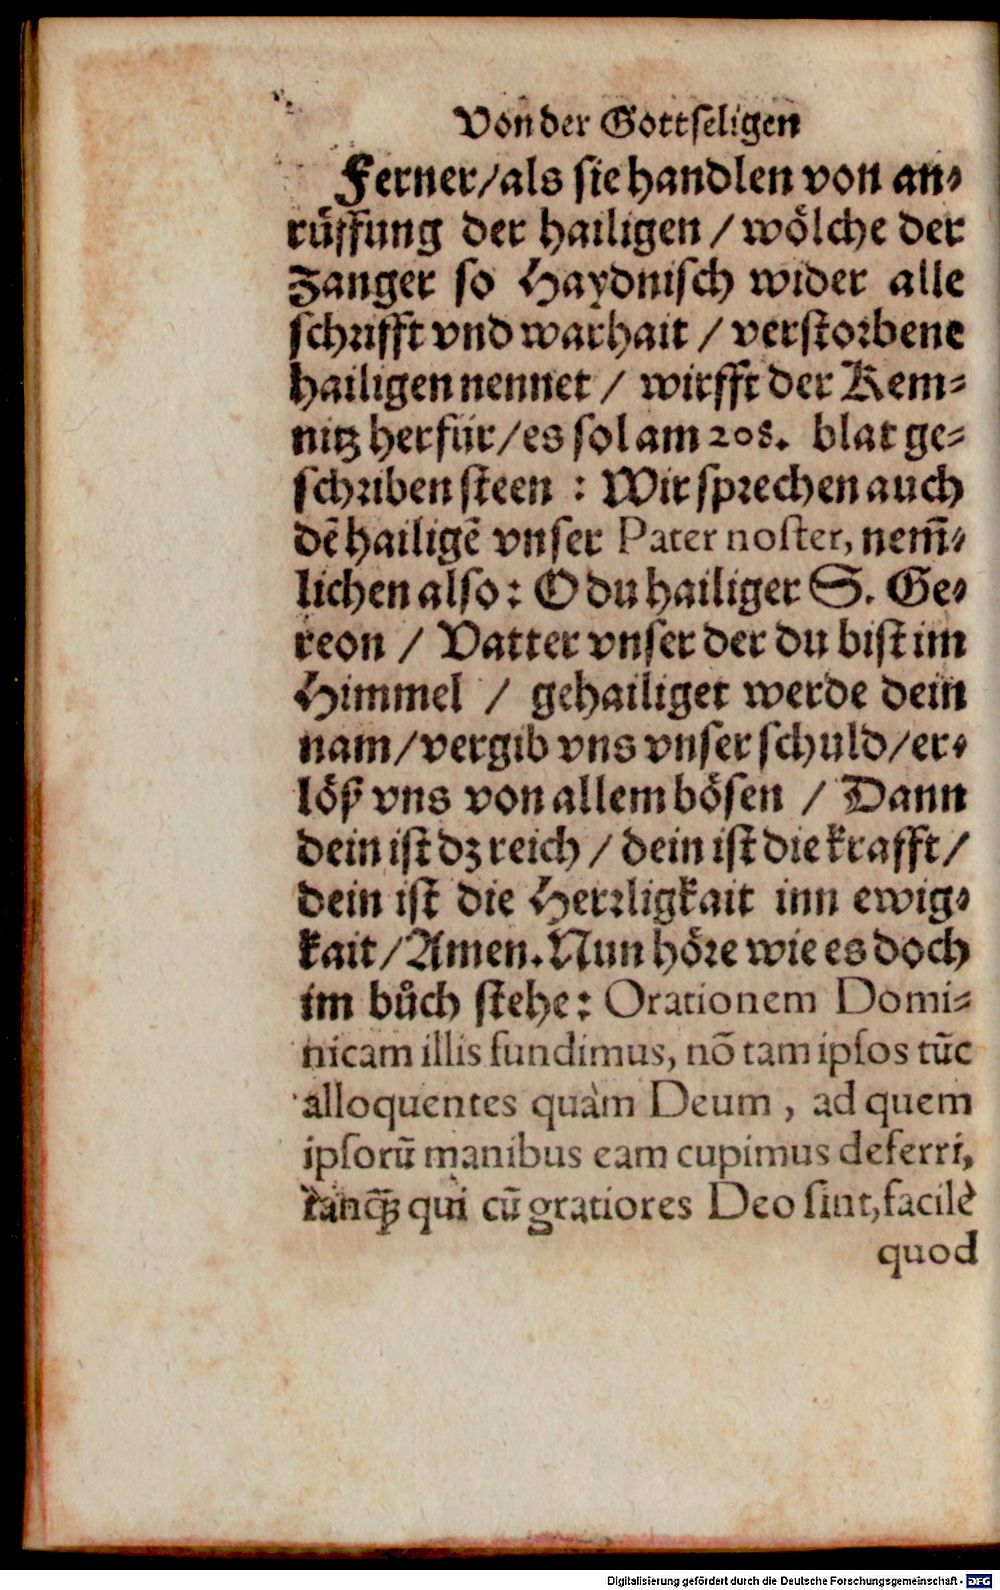 Von der Gottseligen
Ferner/als sie handlen von an-
růffung der hailigen / wölche der
Zanger so Haydnisch wider alle
schrifft vnd warhait / verstorbene
hailigen nennet / wirfft der Kem-
nitz herfür/es sol am 208. blat ge-
schriben steen : Wir sprechen auch
dē hailigē vnser Pater noster, nem̃-
lichen also: O du hailiger S. Ge-
reon / Vatter vnser der du bist im
Himmel / gehailiget werde dein
nam/vergib vns vnser schuld/er-
löß vns von allem bösen / Dann
dein ist dz reich / dein ist die krafft/
dein ist die Herrligkait inn ewig-
kait/Amen. Nun höre wie es doch
im bůch stehe: Orationem Domi-
nicam illis fundimus, nō tam ipsos tūc
alloquentes quàm Deum , ad quem
ipsorū manibus eam cupimus deferri,
tanq̃ʒ qui cū gratiores Deo sint, facilè
quod
Digitalisierung gefördert durch die Deutsche Forschungsgemeinschaft - DFG